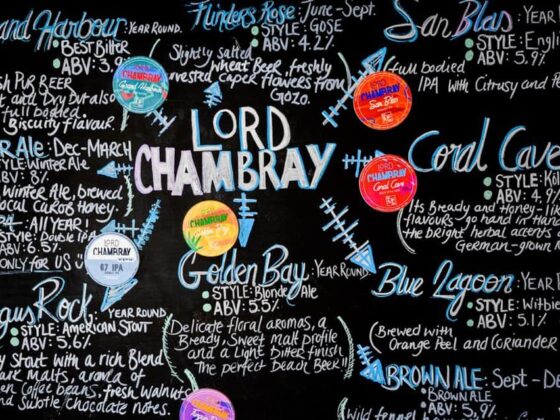 and Harbour: YEAR ROUND.
BEST BITTER
ABV: 3.9
sh PUB BEER
t and Dry but also
full bodied.
Biscuity flavour.
R ALE: DEC-MARCH
STYLE: WINTER ALE
ABV: 8%
Winter Ale, brewed
local Carob Honey.
ALL YEAR!
STYLE: DOUBLE IPA
ABV: 6.5%
ONLY FOR US
gus Rock: YEAR ROUND
STYLE: AMERICAN STOUT
ABV: 5.6%
y Stout with a rich Blend
Malts, aroma of
en Coffee beans, fresh Walnuts
and Subtle Chocolate notes.
Flinders Rose: June-Sept.
STYLE: GOSE
ABV: 4.2%
Slightly salted
wheat Beer, freshly
harvested caper flavours from
Gozo.
LORD
CHAMBRAY
CHAMBRAY
Grand Harbour
LORD
CHAMBRAY
San Blas
CHAMBRAY
Coral Cave
CHAMBRAY
LORD
CHAMBRAY
67 IPA
CHAMBRAY
Golden Bay: YEAR ROUND
STYLE: Blonde Ale
ABV: 5.5%
Delicate floral aromas, a
Bready, Sweet malt profile
and a Light Bitter finish
The perfect Beach Beer!!
San Blas: YEAR
STYLE: Engli
ABV: 5.9%
full bodied
IPA with Citrusy and
Coral Cave
STYLE: Köl
ABV: 4.7
Its Bready and Honey-li
flavours go hand in hand
the bright herbal accents
German-grown
Blue Lagoon: YEAR
STYLE: Witbie
ABV: 5.1%
Brewed with
Orange Peel and Coriander
BROWN ALE: Sept-De
BROWN ALE
ABV: 5.9%
Wild fennel